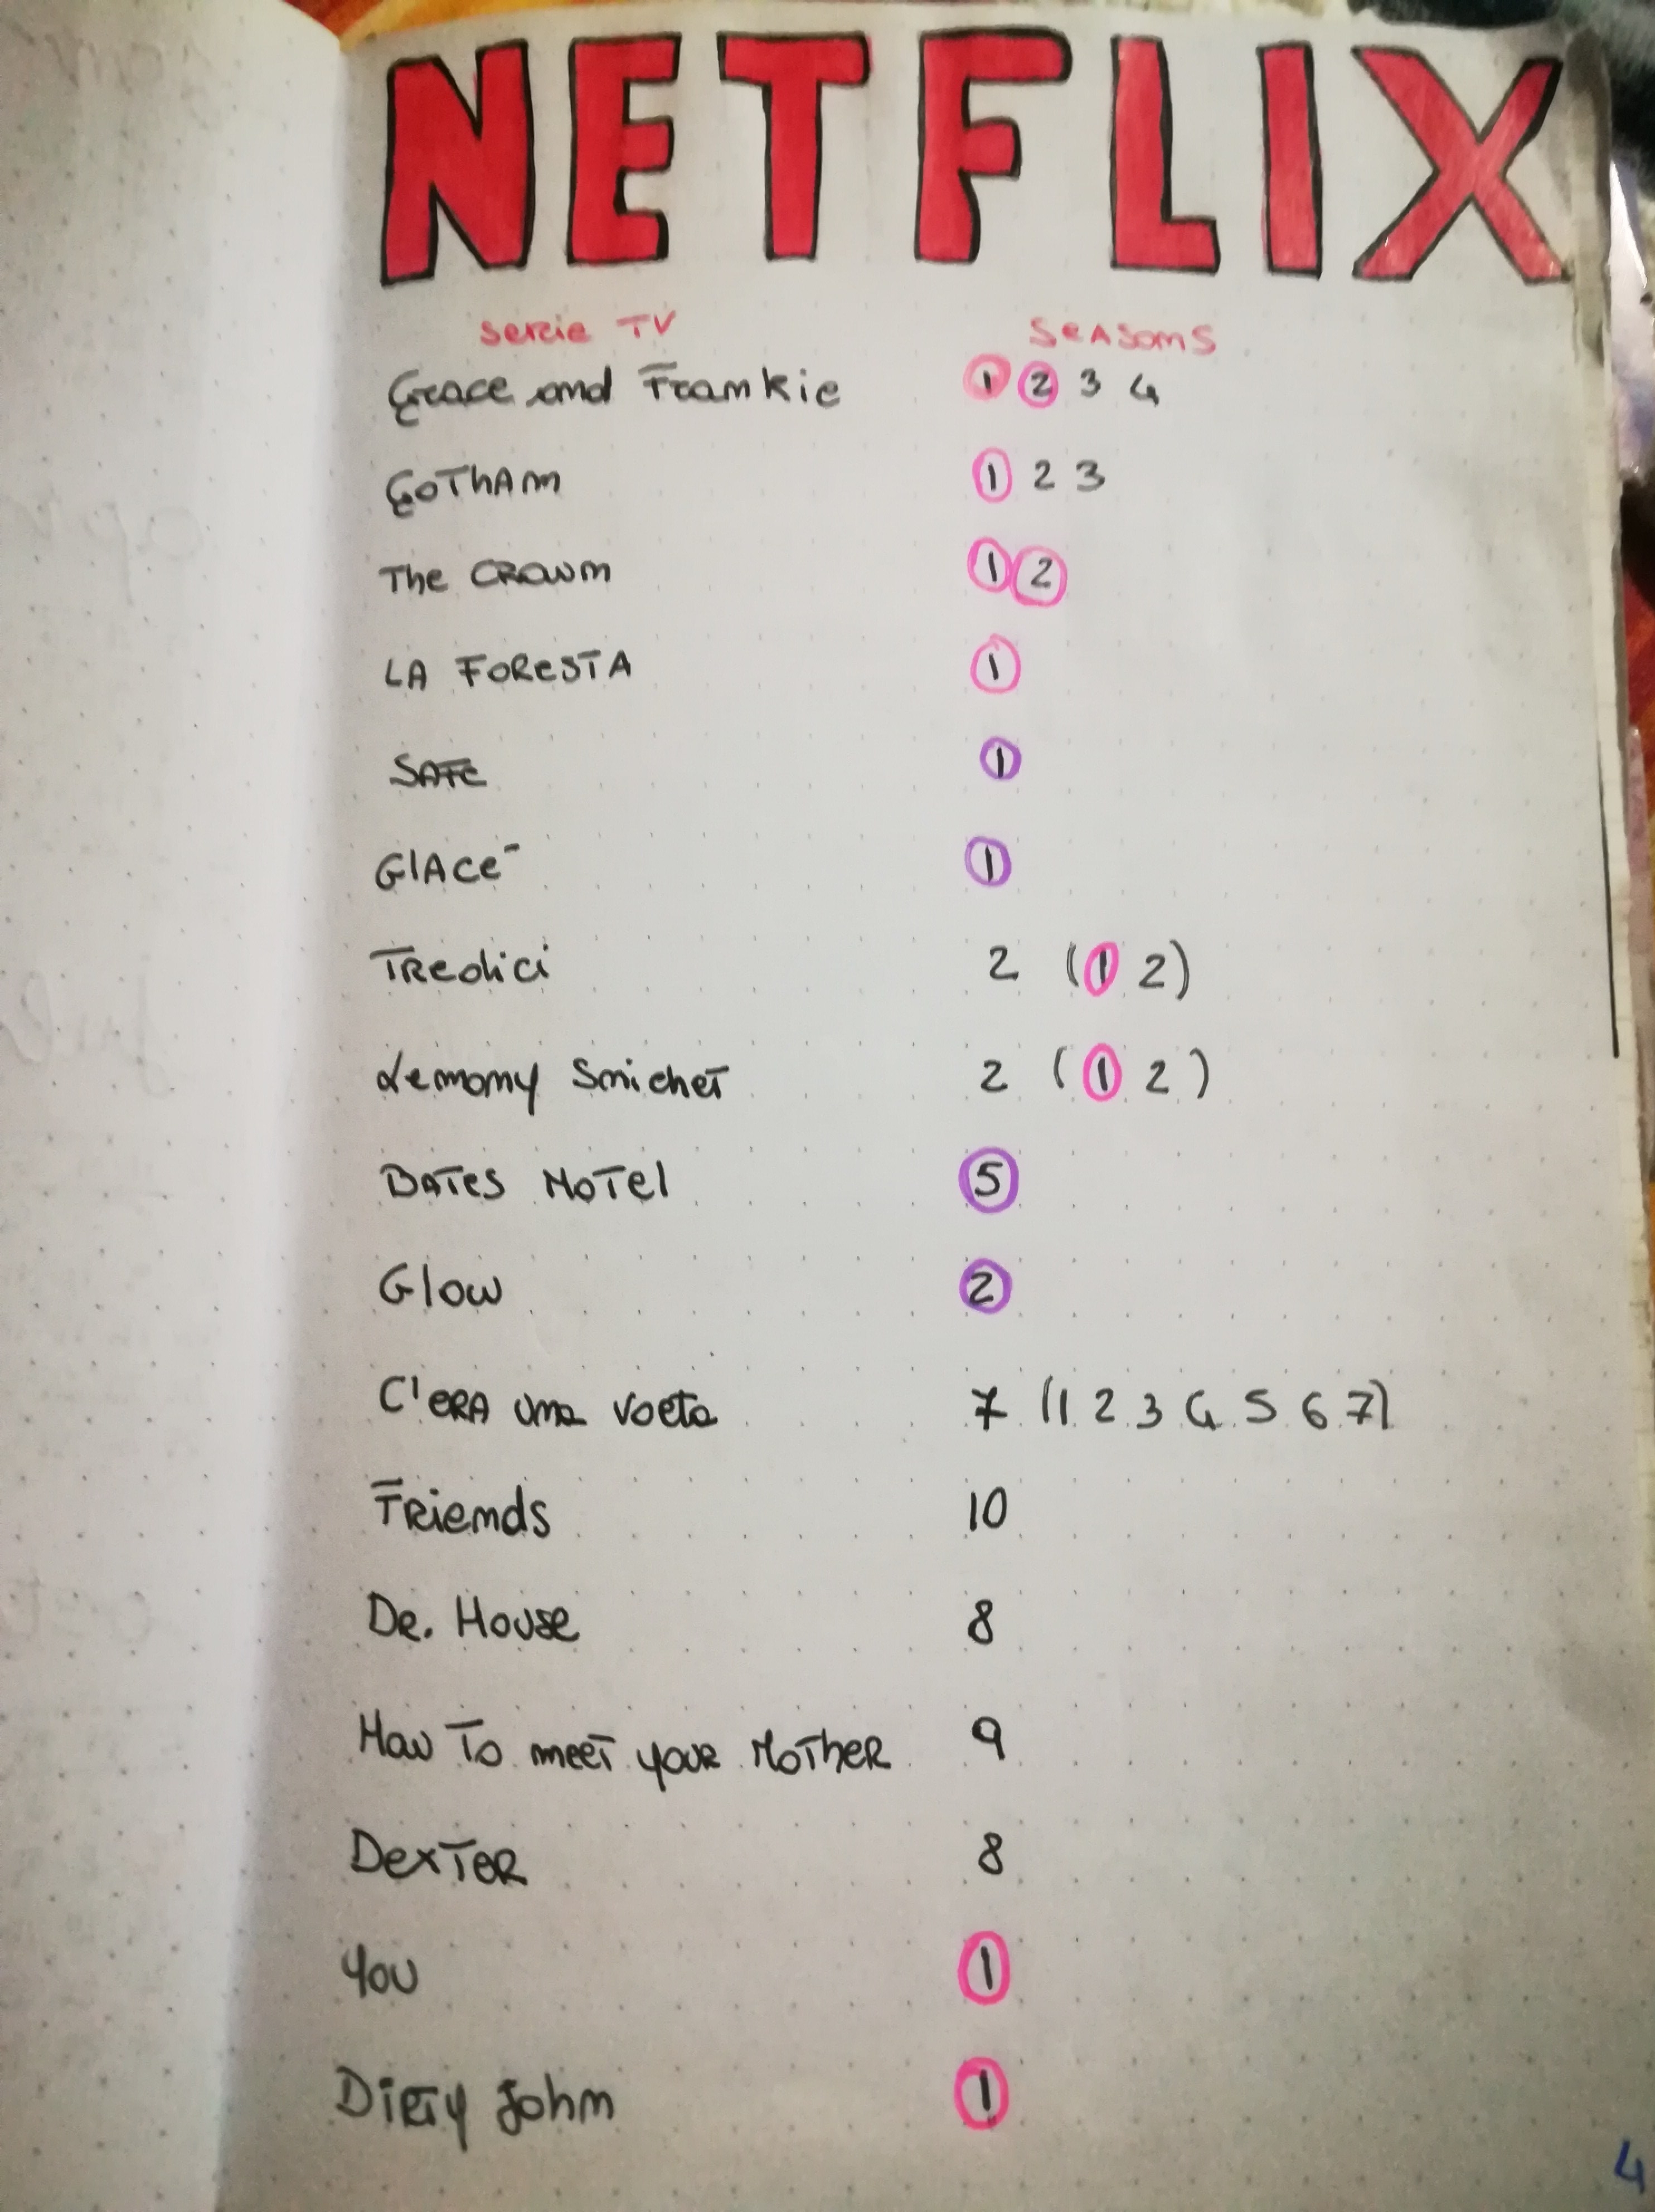 NETFLIX
serie TV SeASonS
Grace and Frankie 1 2 3 4
GoThAm 1 2 3
The CROWn 1 2
LA FOReSTA 1
SAFE 1
GlAce- 1
TRedici 2 (1 2)
Lemony Snichet 2 (1 2)
BATes MoTel 5
Glow 2
C'eRA una volta 7 (1 2 3 4 5 6 7)
FRiends 10
DR. House 8
How To meet your MoTheR 9
DexTeR 8
You 1
DiRTy John 1
4